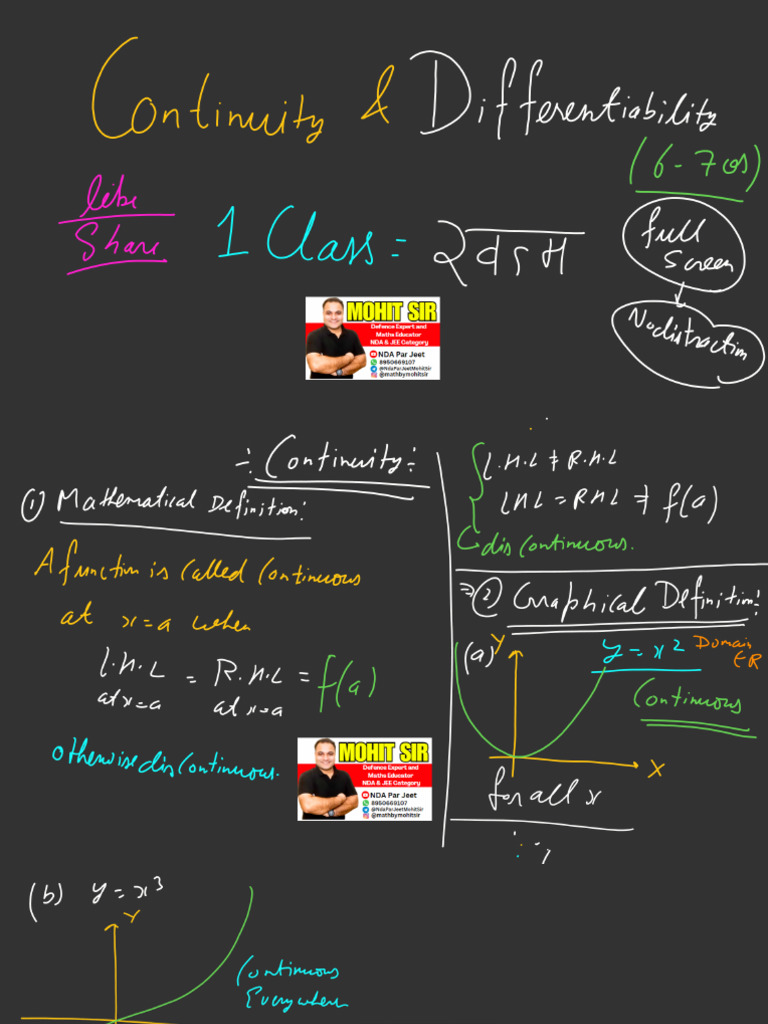 Continuity & Differentiability
(6-7 Qs)
like
Share
1 Class =
full
screen
No distraction
MOHIT SIR
Defence Expert and
Maths Educator
NDA & JEE Category
NDA Par Jeet
8950669107
@NdaParJeetMohitSir
@mathbymohitsir
÷ Continuity:
① Mathematical Definition:
A function is called Continuous
at x=a when
L.H.L = R.H.L = f(a)
at x=a at x=a
otherwise discontinuous.
MOHIT SIR
Defence Expert and
Maths Educator
NDA & JEE Category
NDA Par Jeet
8950669107
@NdaParJeetMohitSir
@mathbymohitsir
L.H.L ≠ R.H.L
LHL = RHL ≠ f(a)
discontinuous.
⇒ ② Graphical Definition:
(a) Y y = x² Domain
∈ R
Continuous
X
for all x
(b) y = x³
Y
Continuous
Everywhere